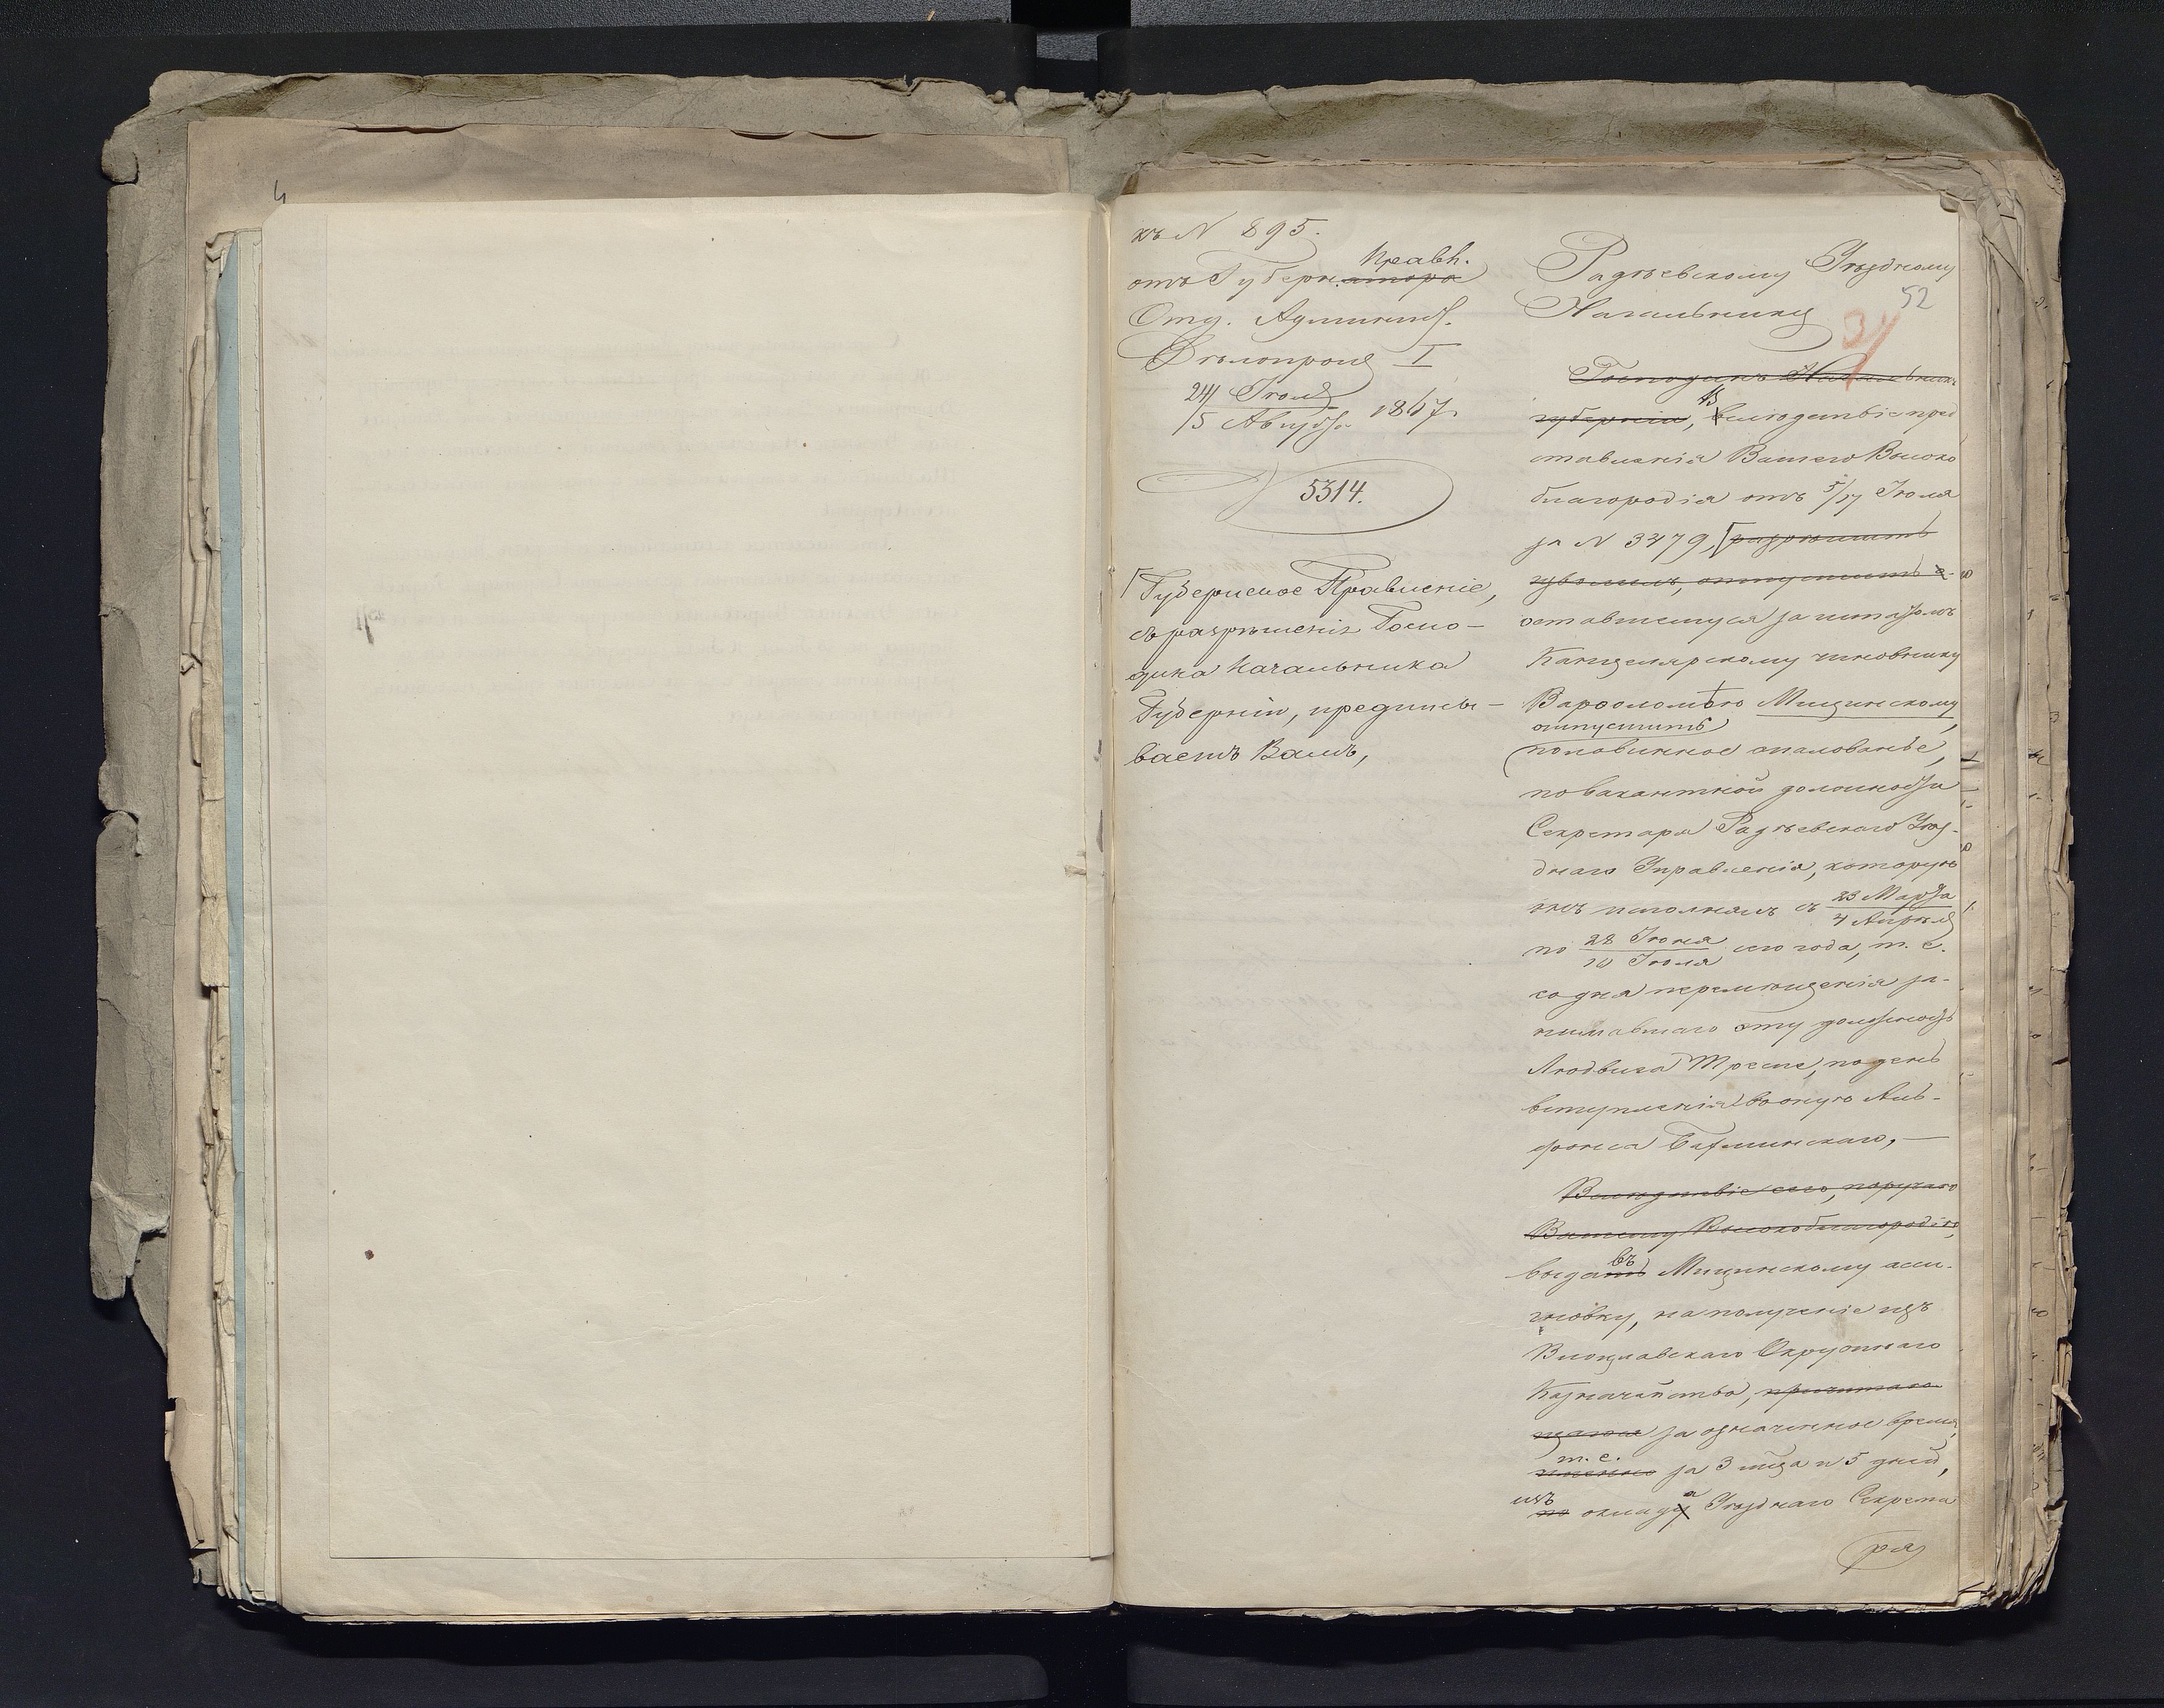 къ N 895.
Правл.
отъ Губерн.атора
Отд. Администр.
Дѣлопроиз I
24 Іюля
5 Августа 1867
5314.
Губернское Правленіе,
съ разрѣшенія Госпо-
дина Начальника
Губерніи, предписы-
ваетъ Вамъ,
Радѣевскому Уѣздному
Начальнику
52
31
Господинъ Начальникъ
губерніи, Вслѣдствіе пред
ставленія Вашего Высоко
благородія отъ 5/17 Іюля
за N 3479, разрѣшить
изволилъ, отпустить
оставшемуся за штатомъ
Канцелярскому чиновнику
Варѳоломѣю Мищинскому
отпустить
половинное жалованье,
по вакантной должности
Секретаря Радѣевскаго Уѣз-
днаго Управленія, которую
онъ исполнялъ съ 23 Марта
4 Апрѣля
по 28 Іюня
10 Іюля сего года, т. е.
со дня перемѣщенія за-
нимавшаго эту должность
Людвига по день
вступленія въ оную Аль-
фонса
Вслѣдствіе сего, поручаю
Вашему Высокоблагородію,
въ
выдать Мищинскому асси-
гновку, на полученіе изъ
Влоцлавскаго Окружнаго
Казначейства, причитаю-
щагося за означенное время,
т. е.
именно за 3 мѣца и 5 дней,
изъ а
по окладу Уѣзднаго Секрета
ря